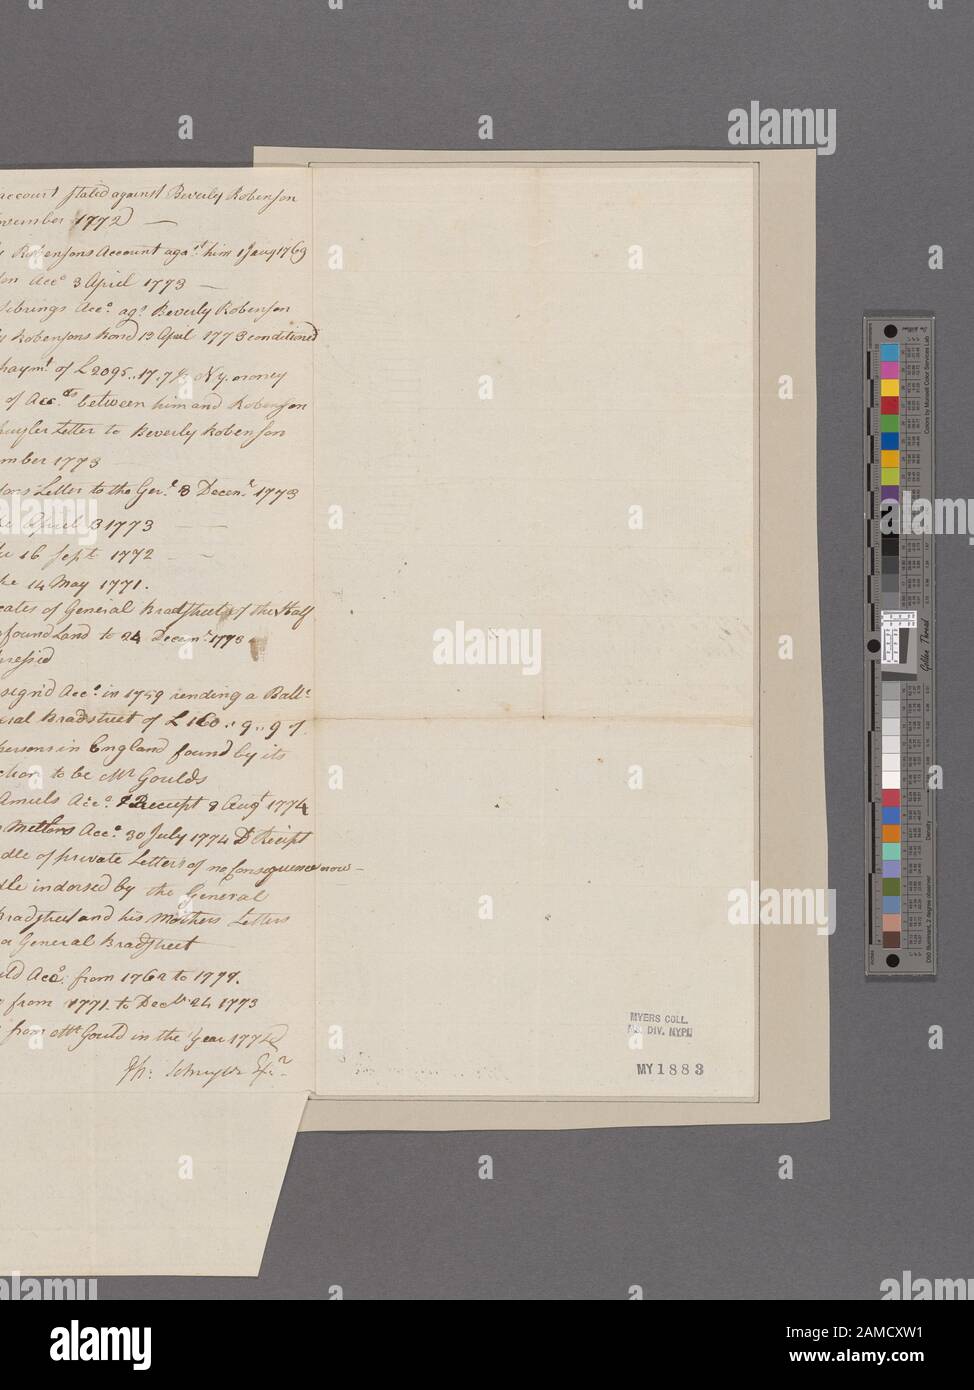 account stated against Beverly Robenson
vember 1772
Robensons Account aga.st him 1 Jany 1769
Acco 3 April 1773
Sibrings Acco. ags. Beverly Robenson
Robensons Bond 13 April 1773 conditioned
paymt. of £2095..17.7 ½ N.y. money
of Acc.ts between him and Robenson
huyler Letter to Beverly Robenson
mber 1773
sons Letter to the Genl. 8 Decemr. 1773
April 3 1773
16 Sept 1772
14 May 1771.
cates of General Bradstreets of the Half
foundLand to 24 Decemr. 1773
pressed
sign'd Acco. in 1759 sending a Balle.
ral Bradstreet of £ 160 .. 9 .. 9 of
persons in England found by its
ction to be Mr. Goulds
Amiels Acco. & Receipt 2 Augt 1774
Mettons Acco. 30 July 1774 & Receipt
dle of private Letters of no Consequence now
dle indorsed by the General
Bradstreet and his Mothers Letters
General Bradstreet
ld Acco. from 1762 to 1777.
from 1771. to Decbr 24 1773
from Mr. Gould in the Year 1774
Ph: Schuyler Exr.
MYERS COLL.
MS. DIV. N.Y.P.L.
MY1883
Golden Thread
Colors by Munsell Color Services Lab
Density
D50 Illuminant, 2 degree observer
inches
centimeters
alamy
a
alamy
Image ID: 2AMCXW1
www.alamy.com